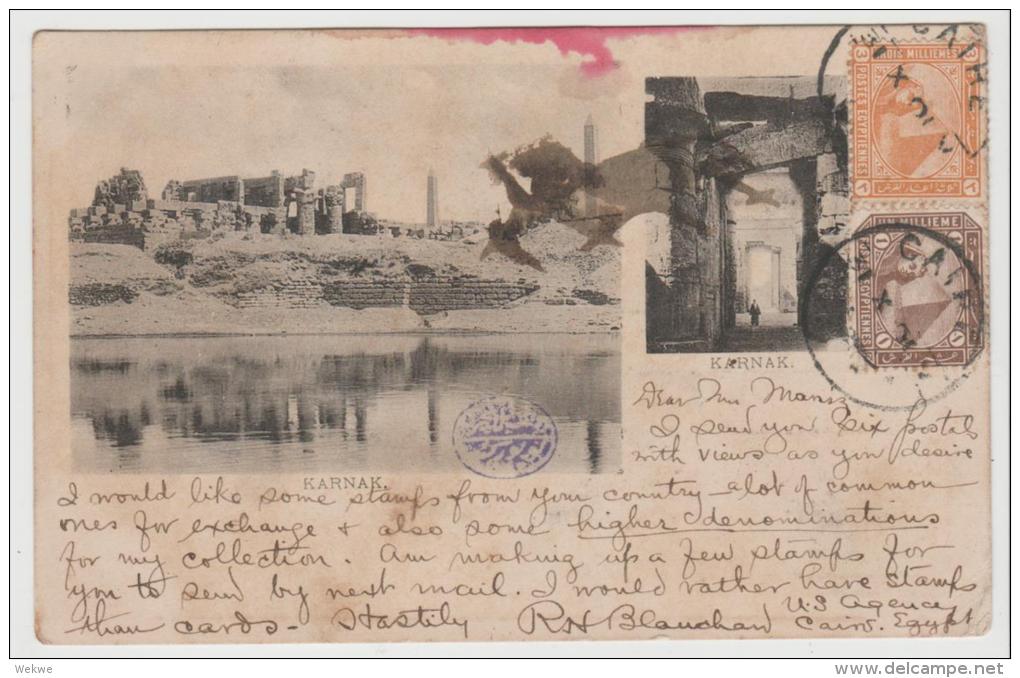 CAIRO
TROIS MILLIEMES
POSTES EGYPTIENNES
3
3
UN MILLIEME
1
1
1
CAIRO
KARNAK.
KARNAK.
Dear Mr
I send you six postals
with views as you desire
I would like some stamps from your country - a lot of common
ones for exchange & also some higher denominations
for my collection. Am making up a few stamps for
you to send by next mail. I would rather have stamps
than cards - Hastily R H Blanchard U.S Agency
Cairo. Egypt
Wekwe
delcampe.net